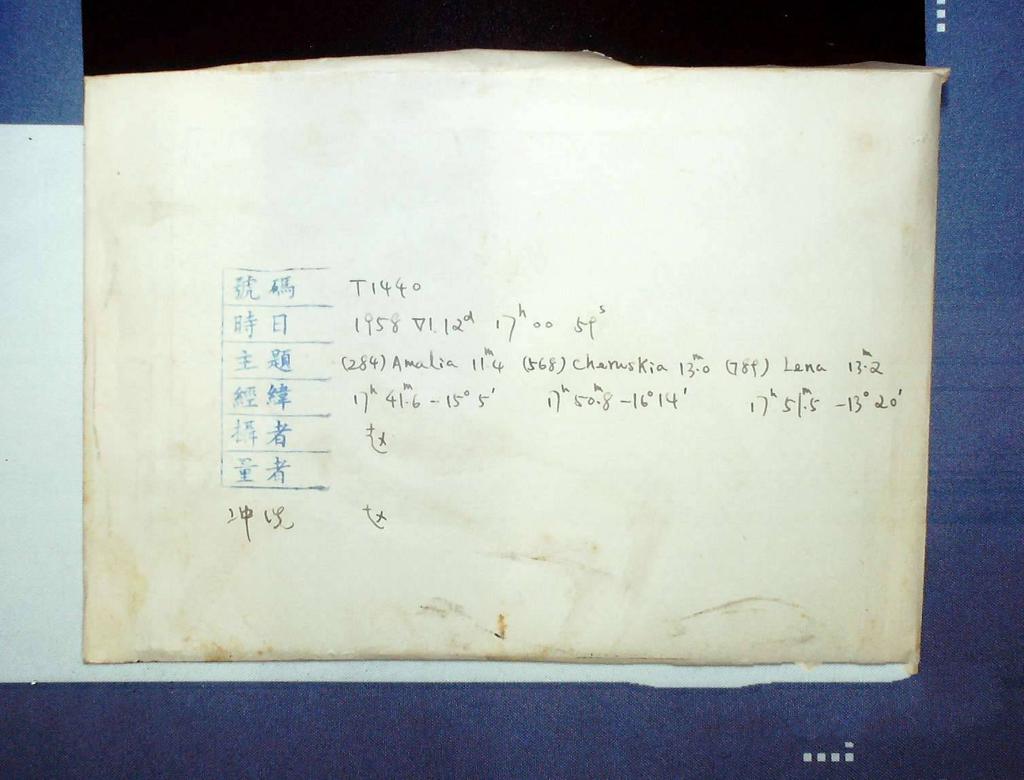 號碼 T1440
時日 1958 VI.12ᵈ 17ʰ 00 59ˢ
主題 (284) Amalia 11ᵐ.4 (568) Cheruskia 13ᵐ.0 (789) Lena 13ᵐ.2
經緯 17ʰ 41ᵐ.6 -15° 5′ 17ʰ 50ᵐ.8 -16° 14′ 17ʰ 51ᵐ.5 -13° 20′
攝者 赵
量者
冲洗 赵